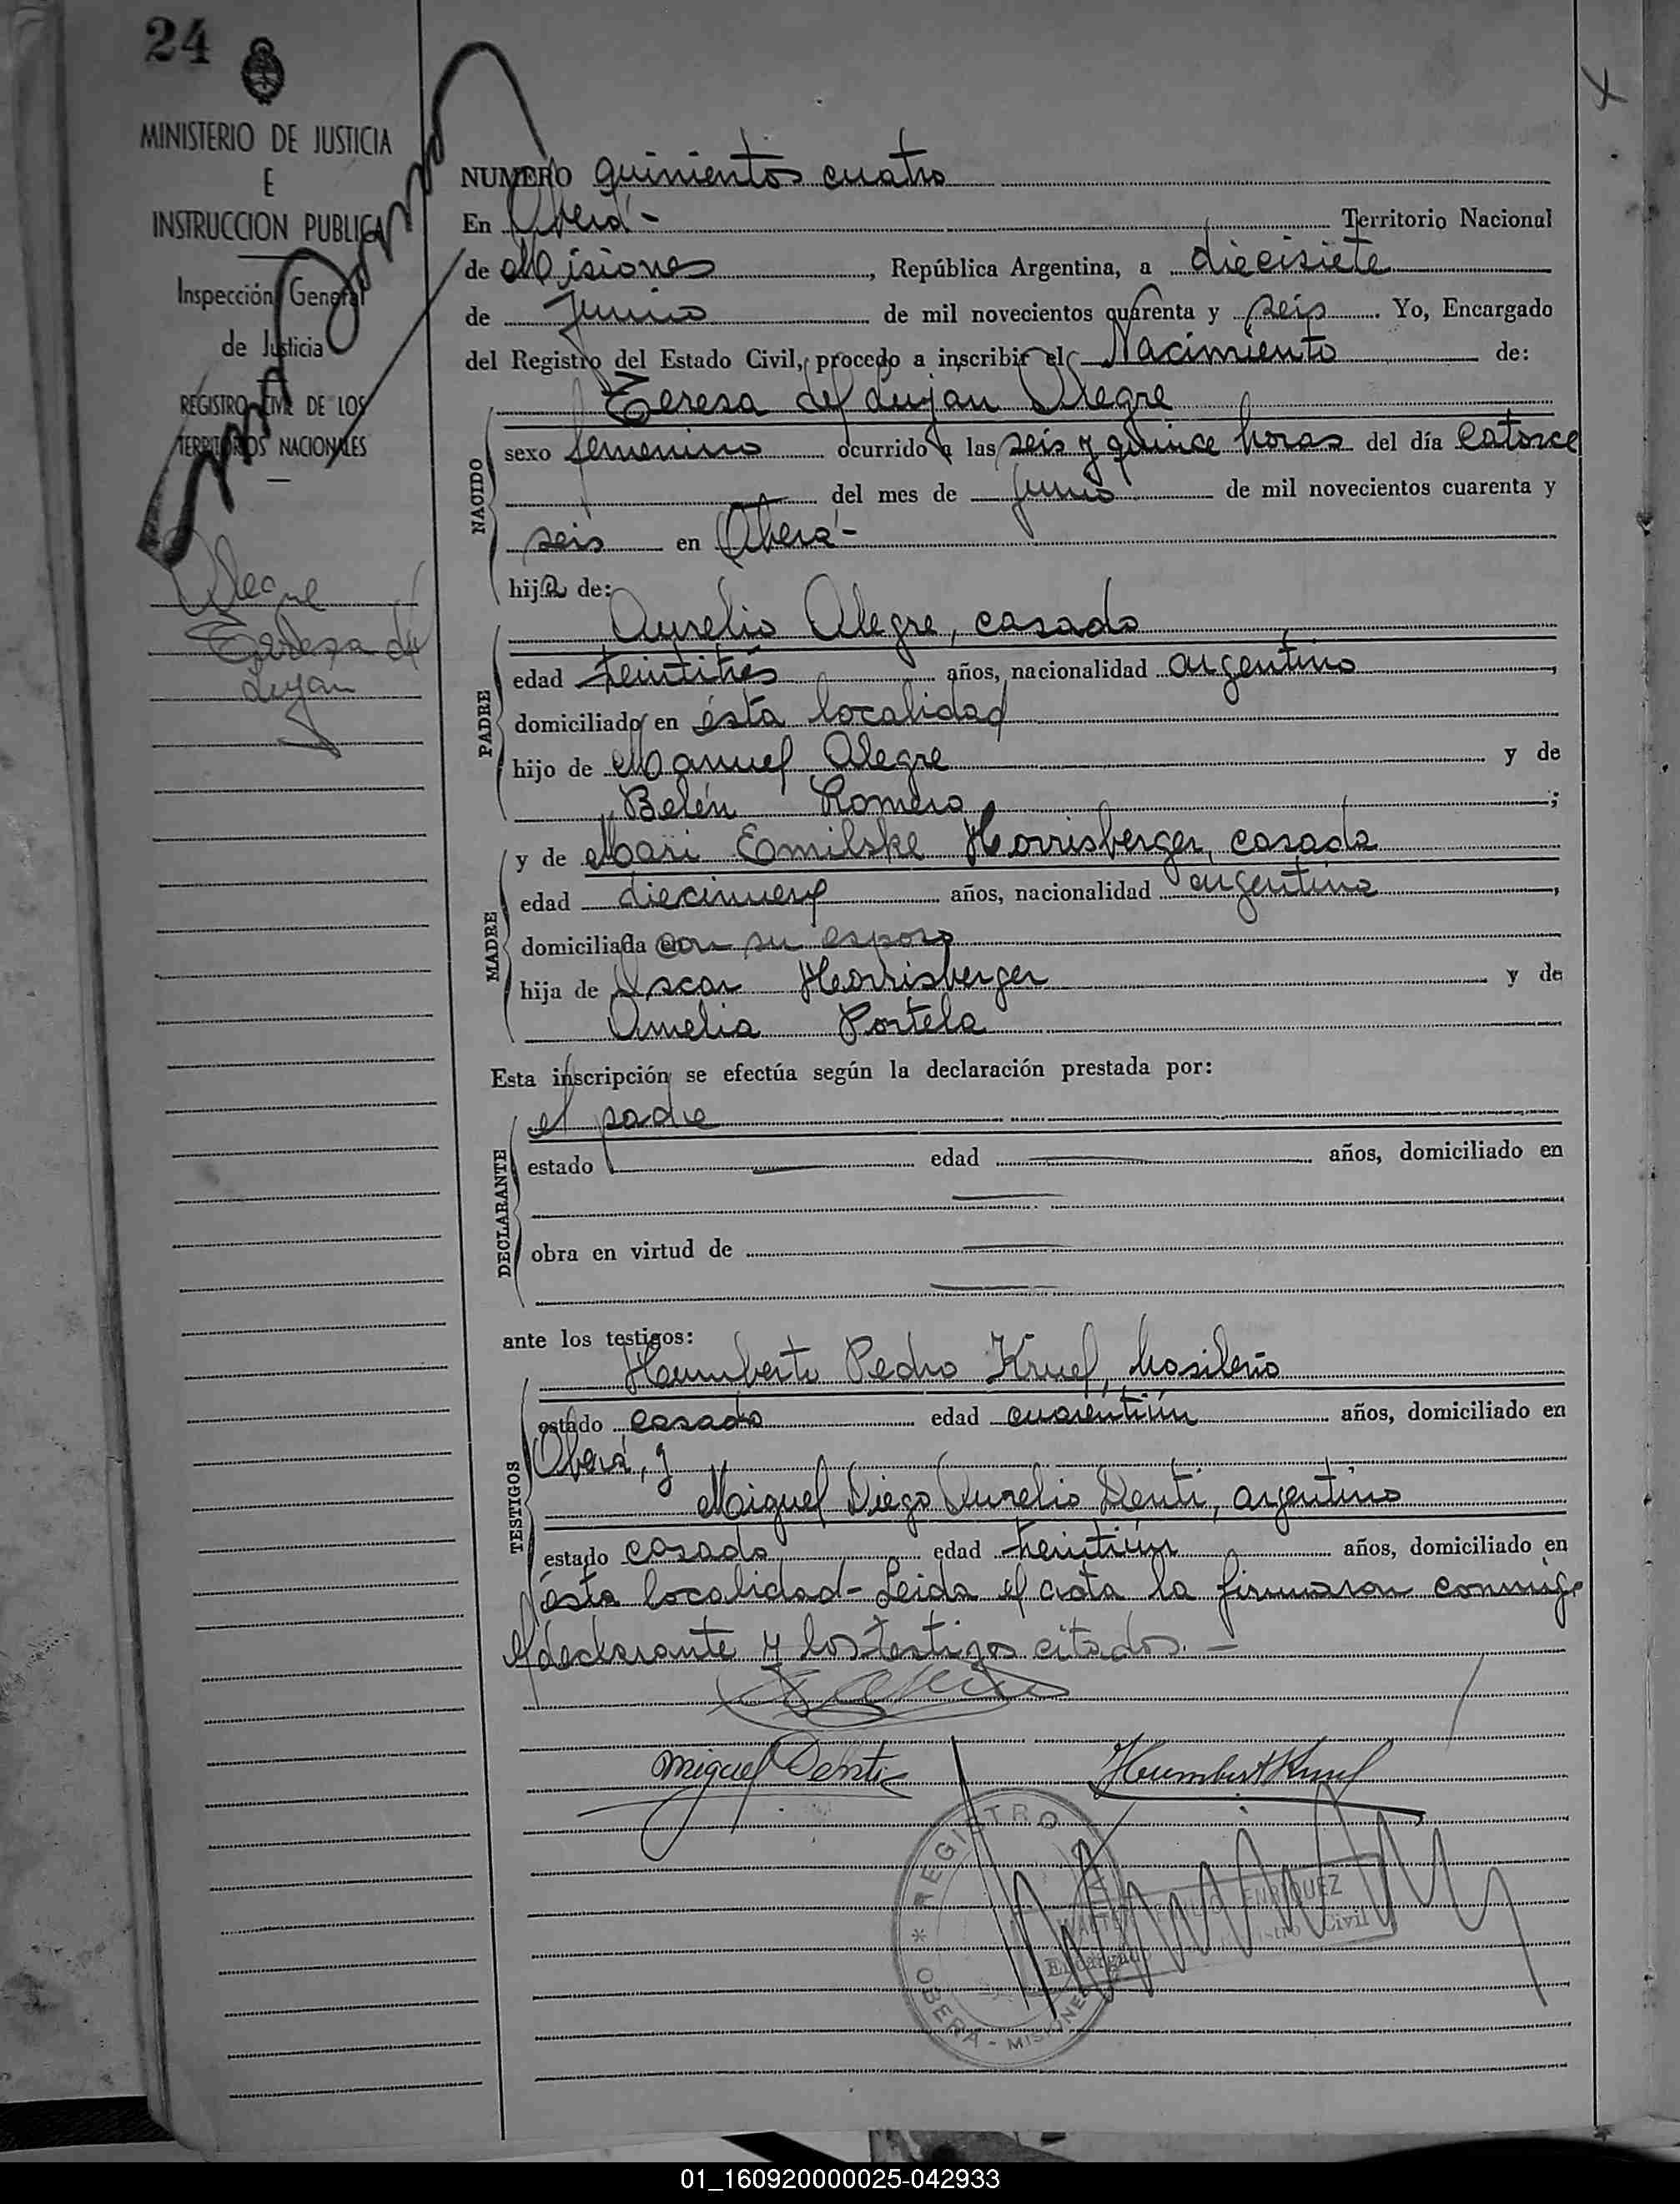 24
MINISTERIO DE JUSTICIA
E
INSTRUCCION PUBLICA
Inspección General
de Justicia
REGISTRO CIVIL DE LOS
TERRITORIOS NACIONALES
Alegre
Teresa del
Lujan
NUMERO quinientos cuatro
En Oberá - Territorio Nacional
de Misiones, República Argentina, a diecisiete
de Junio de mil novecientos cuarenta y seis. Yo, Encargado
del Registro del Estado Civil, procedo a inscribir el Nacimiento de:
Teresa del Lujan Alegre
NACIDO
sexo femenino ocurrido a las seis y quince horas del día catorce
del mes de Junio de mil novecientos cuarenta y
seis en Oberá -
hija de:
Aurelio Alegre, casado
PADRE
edad treintitrés años, nacionalidad argentino,
domiciliado en ésta localidad
hijo de Manuel Alegre y de
Belén Romero;
y de Mari Emilske Horrisberger, casada
MADRE
edad diecinueve años, nacionalidad argentina,
domiciliada con su esposo
hija de Oscar Horrisberger y de
Amelia Portela
Esta inscripción se efectúa según la declaración prestada por:
el padre
DECLARANTE
estado edad años, domiciliado en
obra en virtud de
ante los testigos:
Humberto Pedro Kruel, brasileño
TESTIGOS
estado casado edad cuarentiún años, domiciliado en
Oberá, y
Miguel Diego Aurelio Denti, argentino
estado casado edad treintiún años, domiciliado en
ésta localidad - Leida el acta la firmaron conmigo
el declarante y los testigos citados. -
Miguel Denti
Humberto Kruel
REGISTRO CIVIL
* OBERA - MISIONES
ENRIQUEZ
Encargado Registro Civil
01_160920000025-042933